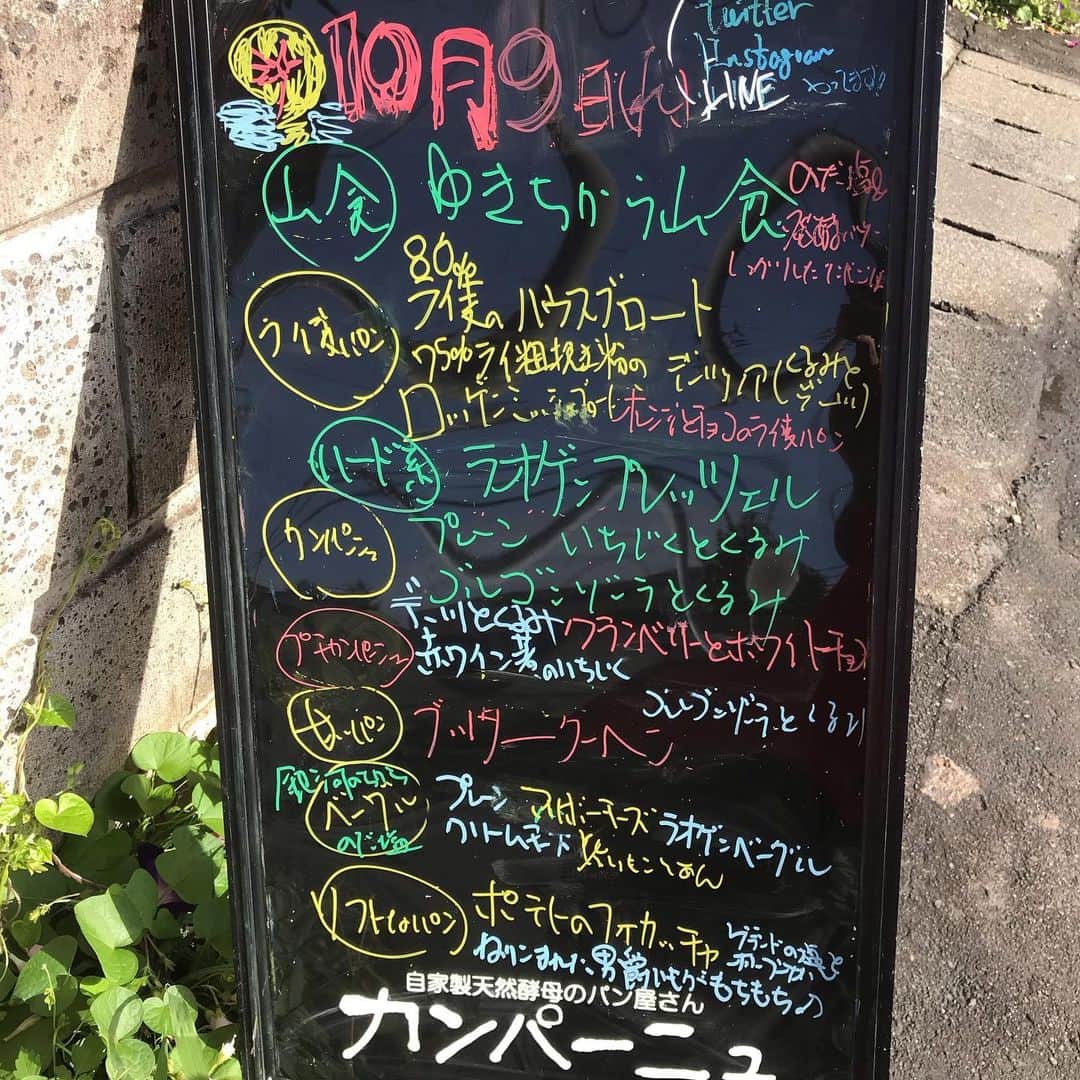 twitter
Instagram
LINE
やってます!!
10月9日(金)
山食
ゆきちから山食
のだ塩と
発酵バター
しっかりした
80%
ライ麦のハウスブロート
ライ麦パン
75%ライ粗挽全粉の デンツリア(くるみと
ロッゲンミッシュブロート オレンジとチョコのライ麦パン
ハード系
ラオゲンプレッツェル
カンパーニュ
プレーン いちじくとくるみ
ゴルゴンゾーラとくるみ
プチカンパーニュ
デーツとくるみ クランベリーとホワイトチョコ
赤ワイン煮のいちじく
ゴルゴンゾーラとくるみ
甘いパン
ブッタークーヘン
銀河のちから
ベーグル
のだ塩
プレーン チーズ ラオゲンベーグル
ソフトなパン
ポテトのフォカッチャ
ゲランドの塩と
ねりこまれた男爵いもがもちもち♪
自家製天然酵母のパン屋さん
カンパーニュ